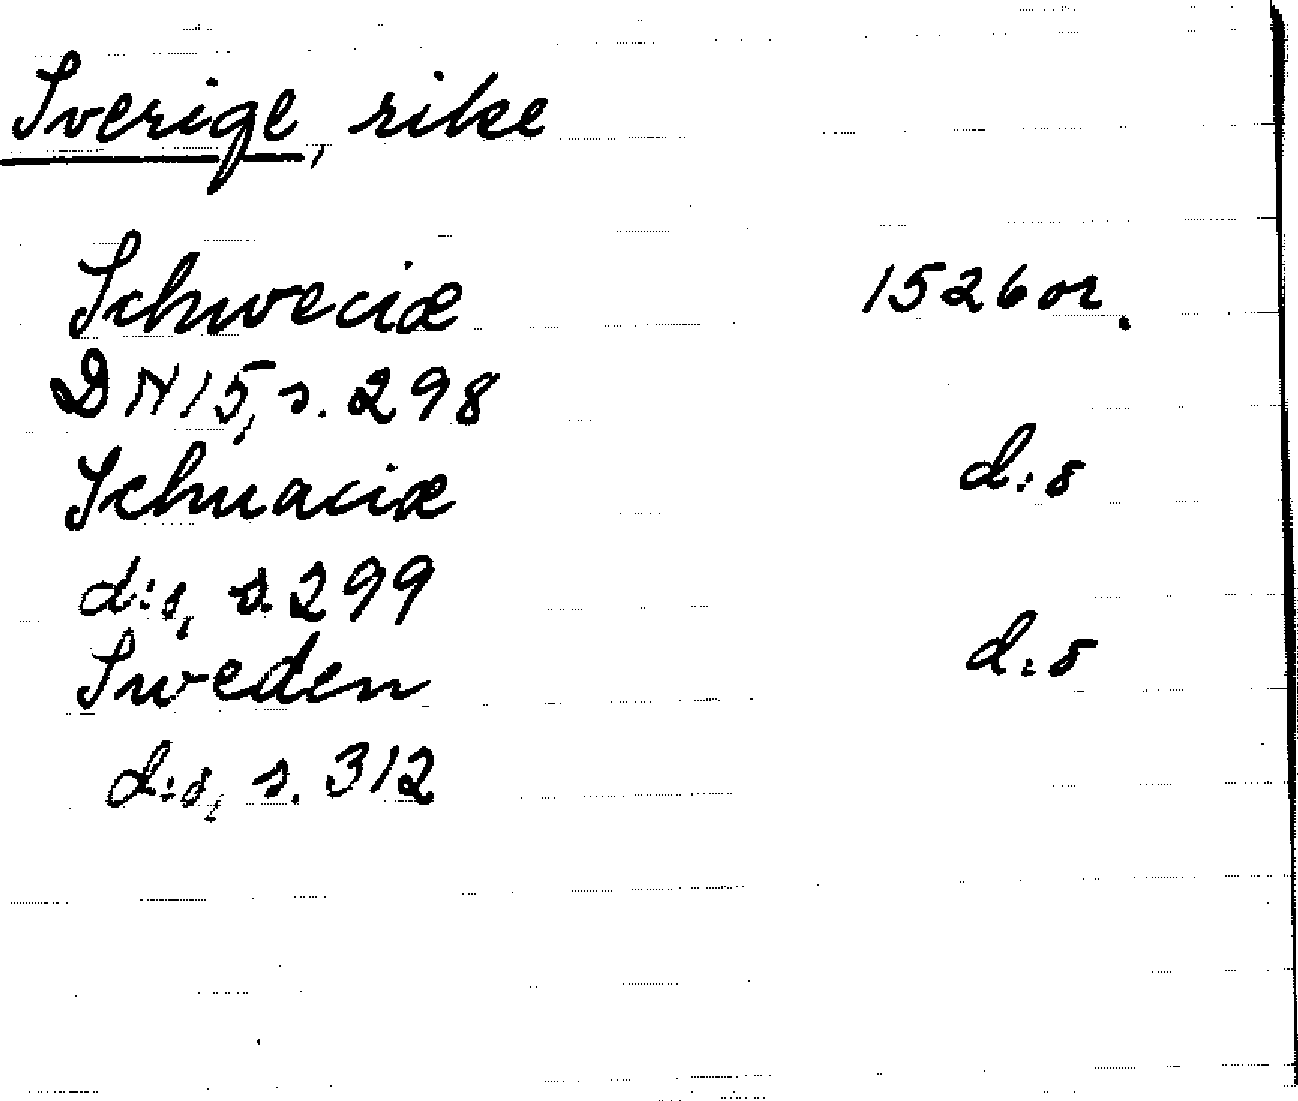 Sverige, rike
Schweciæ 1526 or.
DN 15, s. 298
Schuaciæ d:o
d:o, s. 299
Sweden d:o
d:o, s. 312